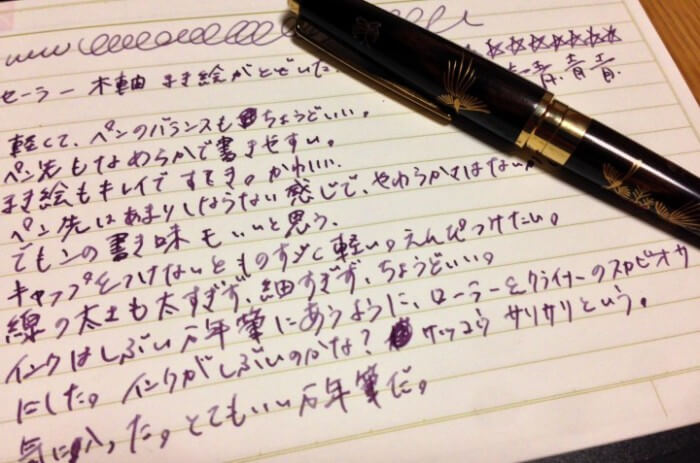 セーラー 木軸 まき絵がとどいた.
青.青青.
軽くて、ペンのバランスもちょうどいい。
ペン先もなめらかで書きやすい。
まき絵もキレイですてき。かわいい.
ペン先はあまりしならない感じで、やわらかくはない。
でもこの書き味もいいと思う.
キャップをつけないとものすごく軽い。えんぴつけたい。
線の太士も太すぎず、細すぎず、ちょうどいい。
インクはしぶい万年筆にあうように、ローラー&クライナーのスカビオサ
にした。インクがしぶいのかな? サリサリという。
気に入った。とてもいい万年筆だ。